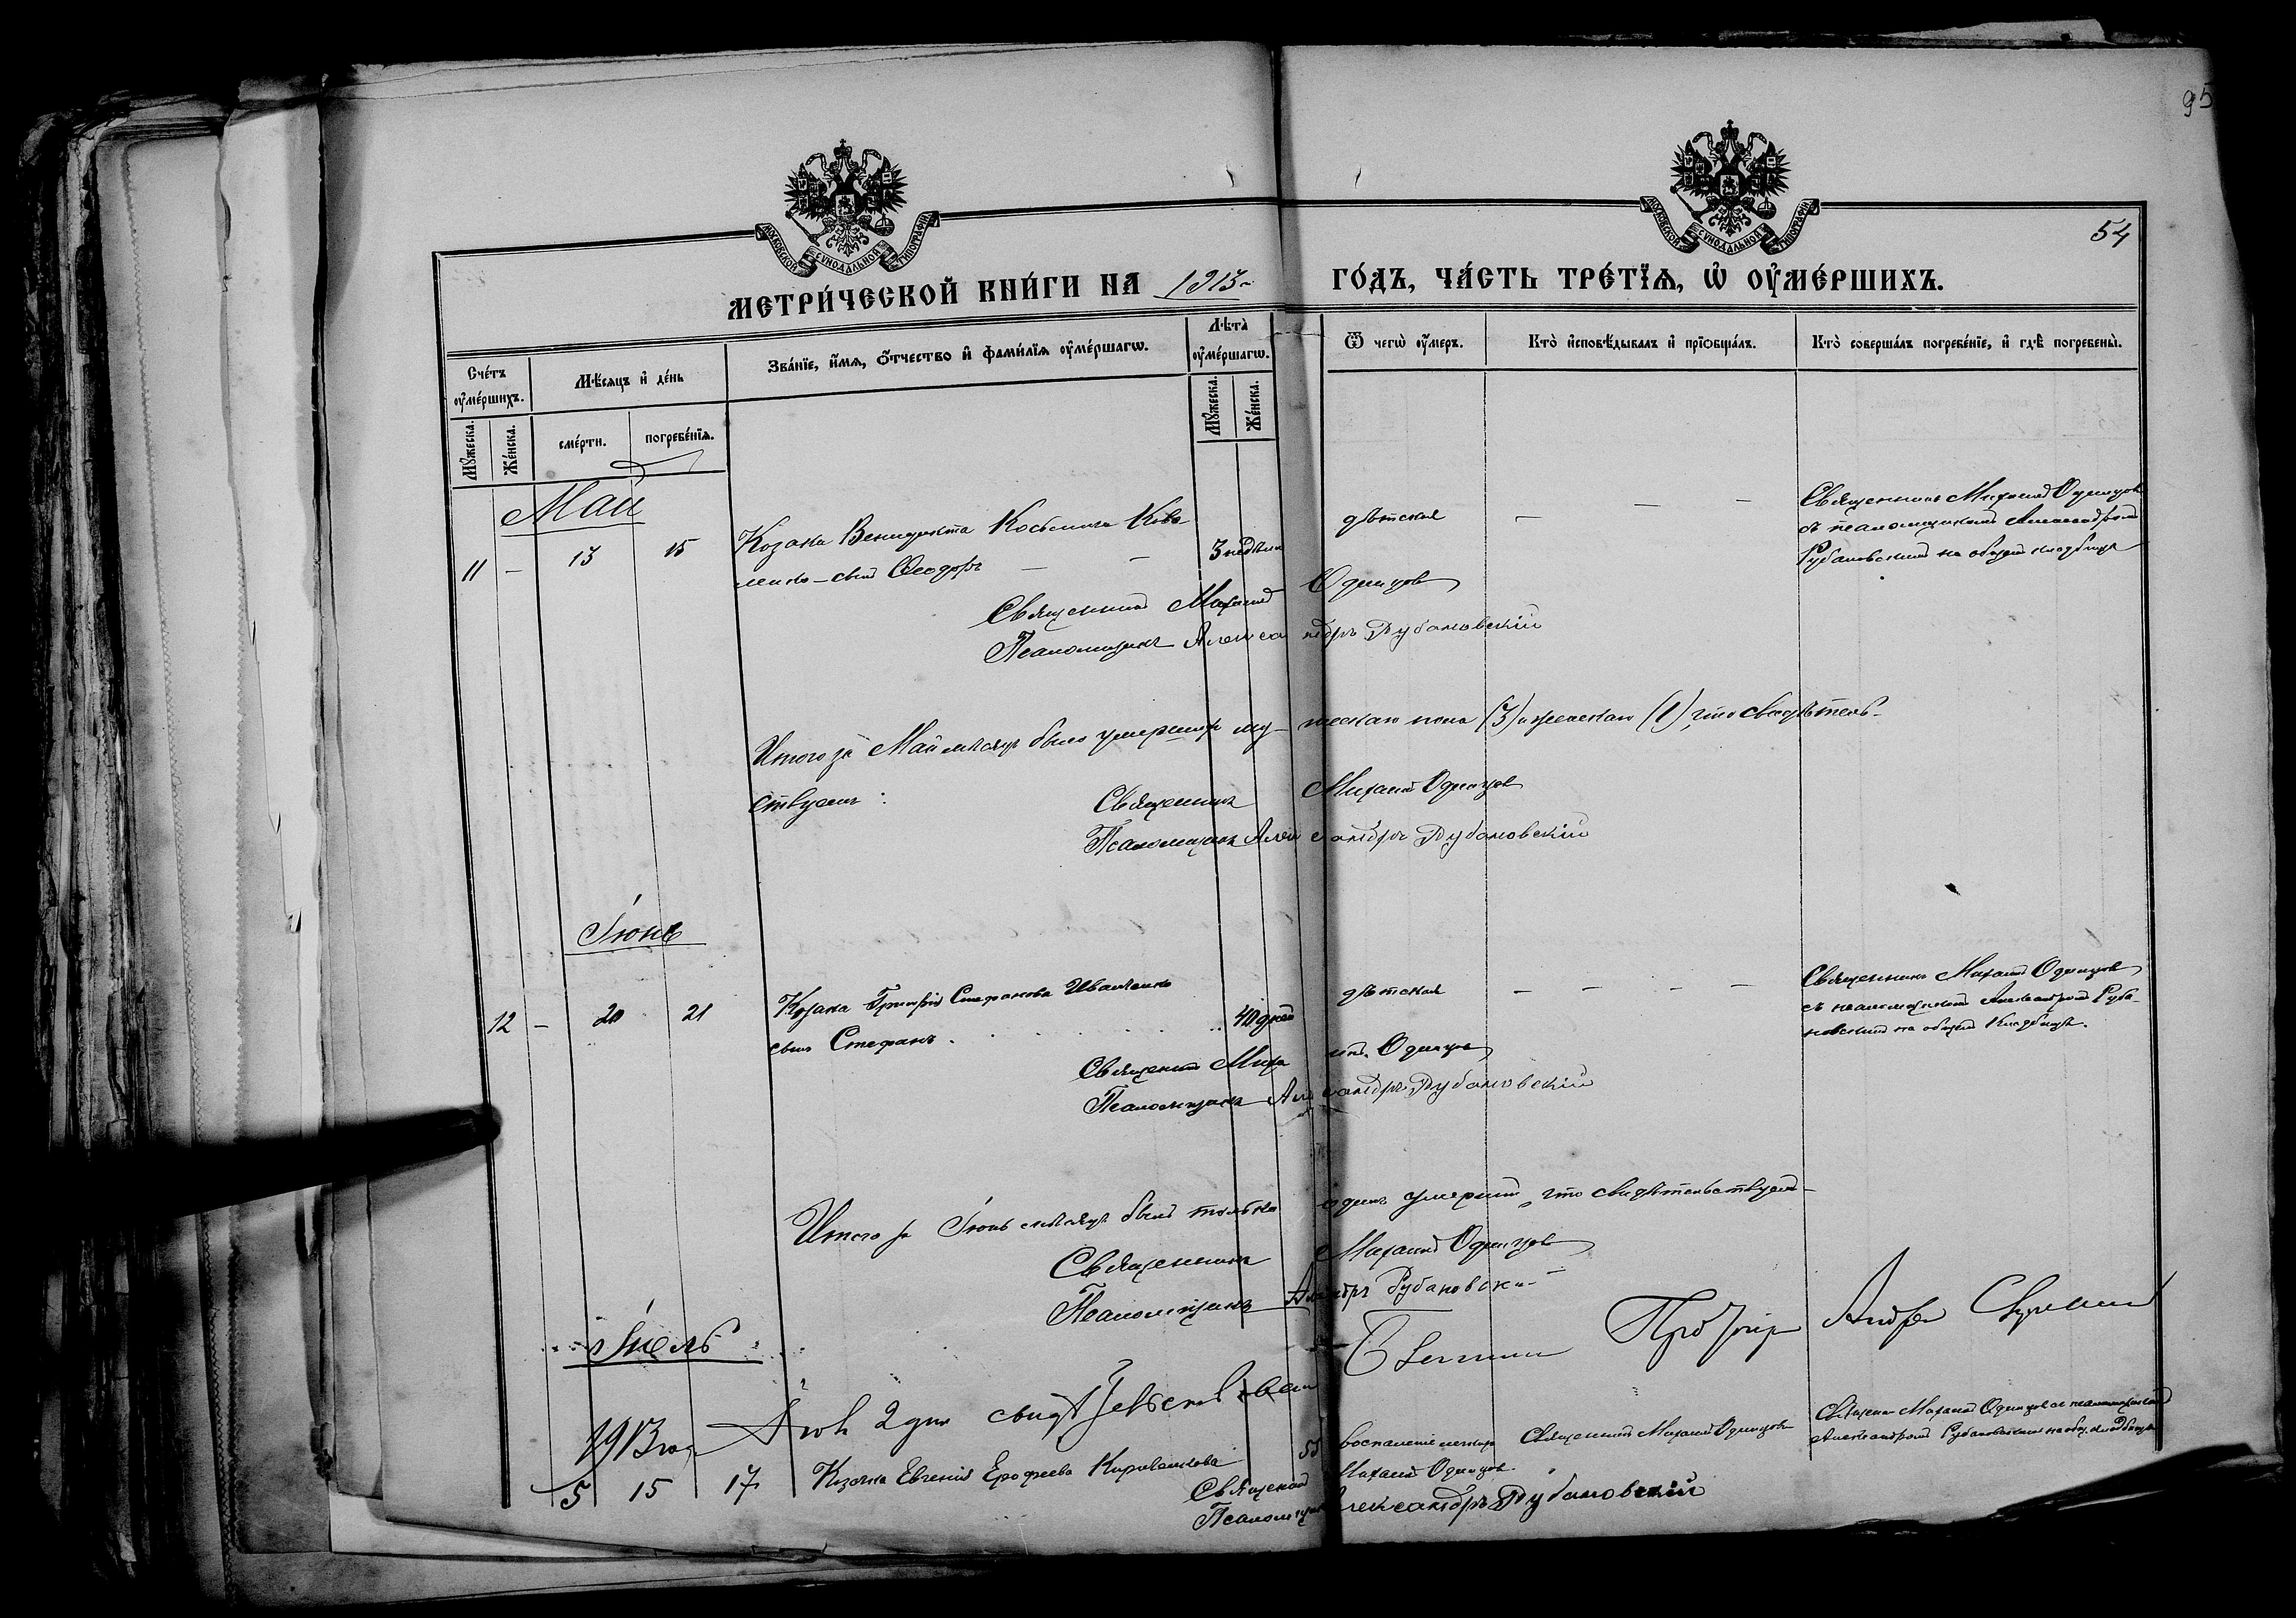 95
54
МОСКОВСКОЙ СУНОДАЛЬНОЙ ТИПОГРАФІИ
МОСКОВСКОЙ СУНОДАЛЬНОЙ ТИПОГРАФІИ
МЕТРИ́ЧЕСКОЙ КНИ́ГИ НА 1913 ГО́ДЪ, ЧА́СТЬ ТРЕ́ТЇѦ, Ѡ҆ ОУ҆МЕ́РШИХЪ.
Сче́тъ оу҆ме́ршихъ.
Мꙋ́жеска. Же́нска.
Мѣ́сяцъ и҆ де́нь
сме́рти. погребе́нїѧ.
Зва́нїе, и҆́мѧ, ѻ҆́тчество и҆ фами́лїѧ оу҆ме́ршагѡ.
Лѣта̀ оу҆ме́ршагѡ.
Мꙋ́жеска. Же́нска.
Ѿ чегѡ̀ оу҆́меръ.
Кто̀ и҆сповѣ́дывалъ и҆ прїѻбща́лъ.
Кто̀ соверша́лъ погребе́нїе, и҆ гдѣ̀ погребены̀.
Май
11 – 13 15 Козака Венидикта Косьмича Кова-
ленко – сынъ Ѳеодоръ – – 3 недѣли
дѣтская – – –
Священникъ Михаилъ Одинцовъ
съ псаломщикомъ Александромъ
Рубановскимъ на общемъ кладбище
Священникъ Михаилъ Одинцовъ
Псаломщикъ Александръ Рубановскій
Итого за Май мѣсяцъ было умершихъ мужескаго пола (3) и женскаго (1), что свидѣтель-
ствуемъ:
Священникъ Михаилъ Одинцовъ
Псаломщикъ Александръ Рубановскій
Іюнь
12 – 20 21 Козака Григорія Стефанова Иваненко
сынъ Стефанъ 40 дней
дѣтская – – – –
Священникъ Михаилъ Одинцовъ
съ псаломщикомъ Александромъ Руба-
новскимъ на общемъ кладбище.
Священникъ Михаилъ Одинцовъ
Псаломщикъ Александръ Рубановскій
Итого за Іюнь мѣсяцъ былъ только одинъ умершій, что свидѣтельствуемъ
Священникъ Михаилъ Одинцовъ
Псаломщикъ Александръ Рубановскій
Іюль
1913 года 2 дня свидѣтельствовалъ Андрей
5 15 17 Козачка Евгенія Ерофеева 55 воспаленіе Священникъ Михаилъ Одинцовъ
Священникъ Михаилъ Одинцовъ съ псаломщикомъ
Александромъ Рубановскимъ на общ. кладбище
Священникъ Михаилъ Одинцовъ
Псаломщикъ Александръ Рубановскій